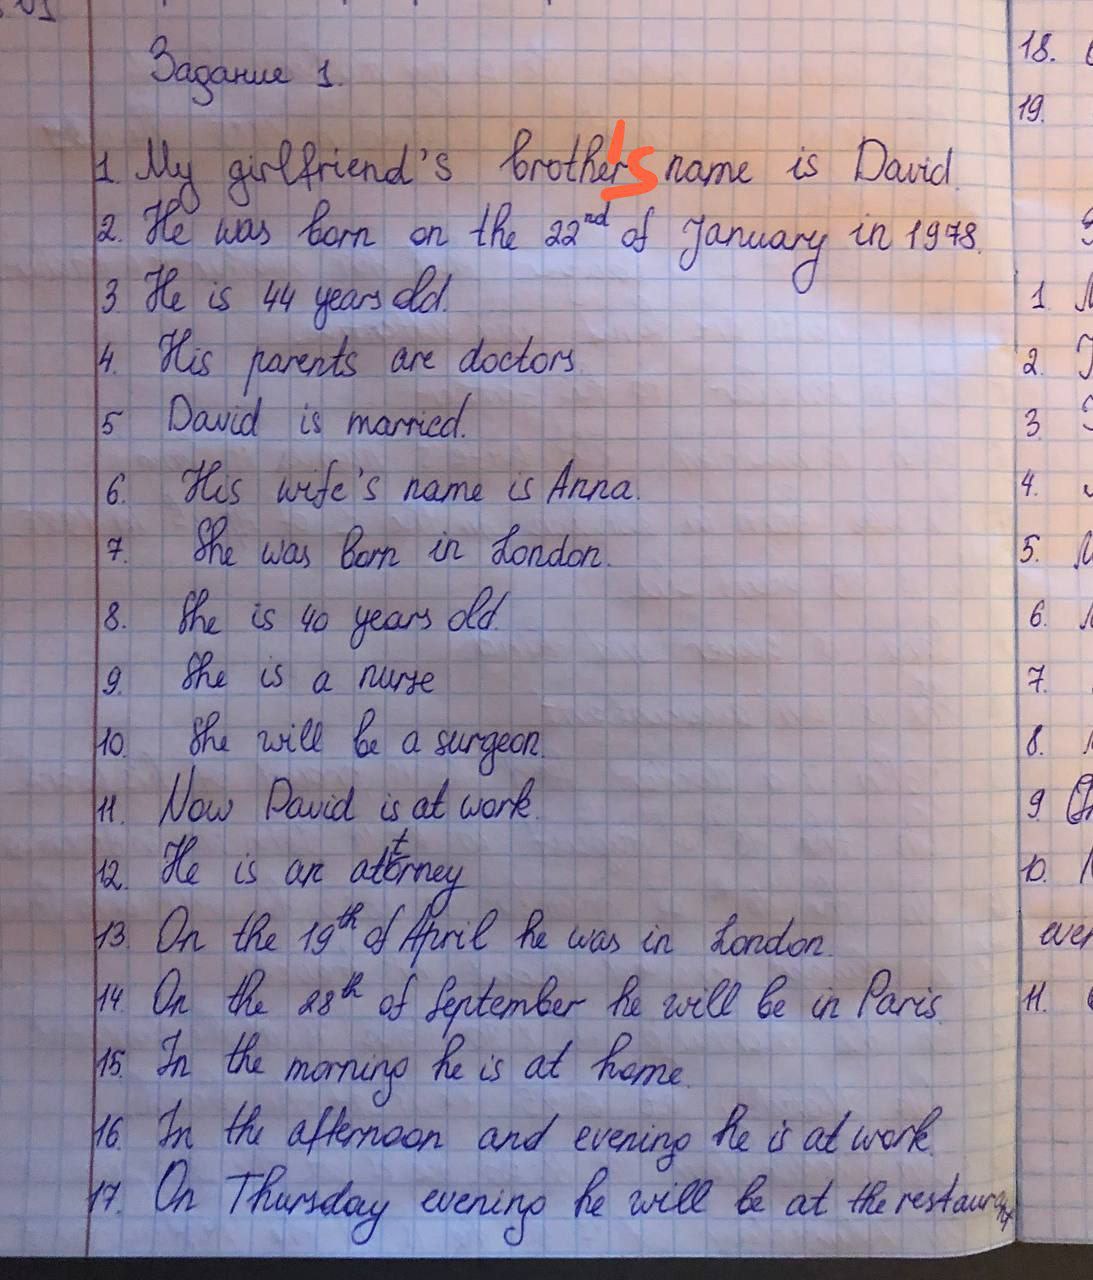 Задание 1.
1. My girlfriend's brother's name is David.
2. He was born on the 22nd of January in 1978.
3 He is 44 years old.
4. His parents are doctors
5 David is married.
6. His wife's name is Anna.
7. She was born in London.
8. She is 40 years old.
9. She is a nurse
10. She will be a surgeon.
11. Now David is at work.
12. He is an attorney
13. On the 19th of April he was in London.
14. On the 28th of September he will be in Paris.
15. In the morning he is at home.
16. In the afternoon and evening he is at work.
17. On Thursday evening he will be at the restaurant
18.
19.
1.
2.
3.
4.
5.
6.
7.
8.
9.
10.
11.